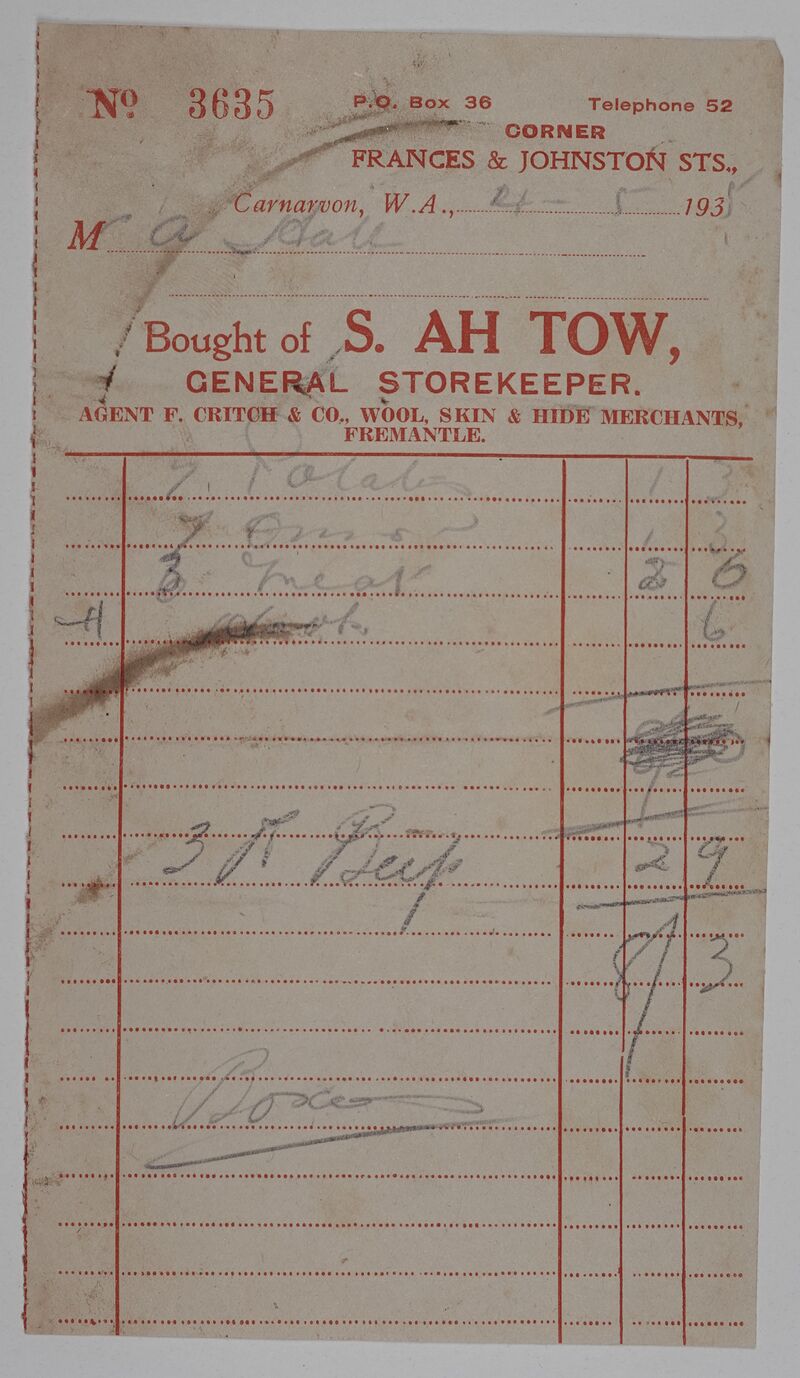 Nº 3635 P.O. Box 36 Telephone 52
CORNER
FRANCES & JOHNSTON STS.,
Carnarvon, W.A., 21 - 5 1935
M A Hall
Bought of S. AH TOW,
GENERAL STOREKEEPER.
AGENT F. CRITCH & CO., WOOL, SKIN & HIDE MERCHANTS,
FREMANTLE.
7 Potatoes 1 3
7 Onion 1 3
3 Meat 2 6
H 6
3 Beef 2 9
8/3
Boxes